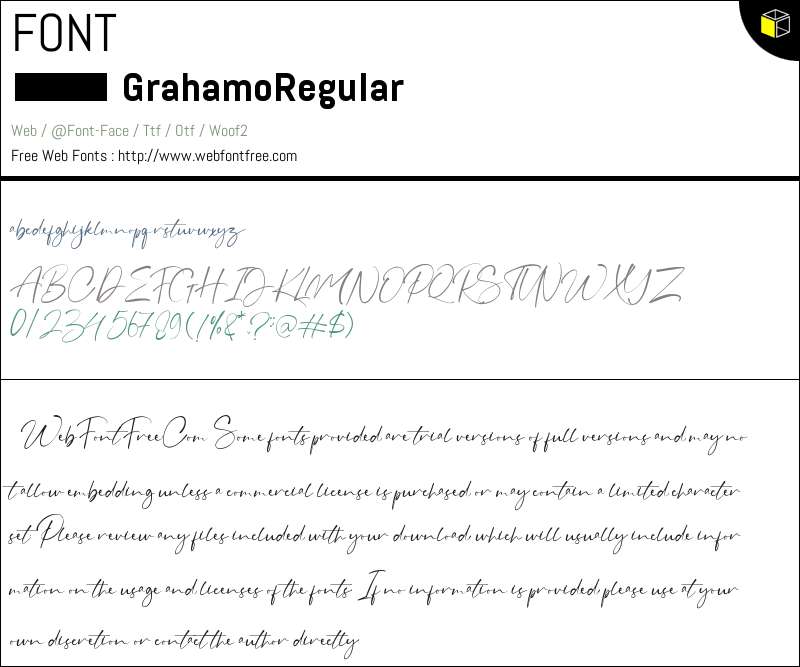 FONT
GrahamoRegular
Web / @Font-Face / Ttf / Otf / Woof2
Free Web Fonts : http://www.webfontfree.com
abcdefghijklmnopqrstuvwxyz
ABCDEFGHIJKLMNOPQRSTUVWXYZ
0123456789(!%&*.?:;@#$)
WebFontFreeCom Some fonts provided are trial versions of full versions and may no
t allow embedding unless a commercial license is purchased or may contain a limited character
set Please review any files included with your download, which will usually include infor
mation on the usage and licenses of the fonts If no information is provided, please use at your
own discretion or contact the author directly